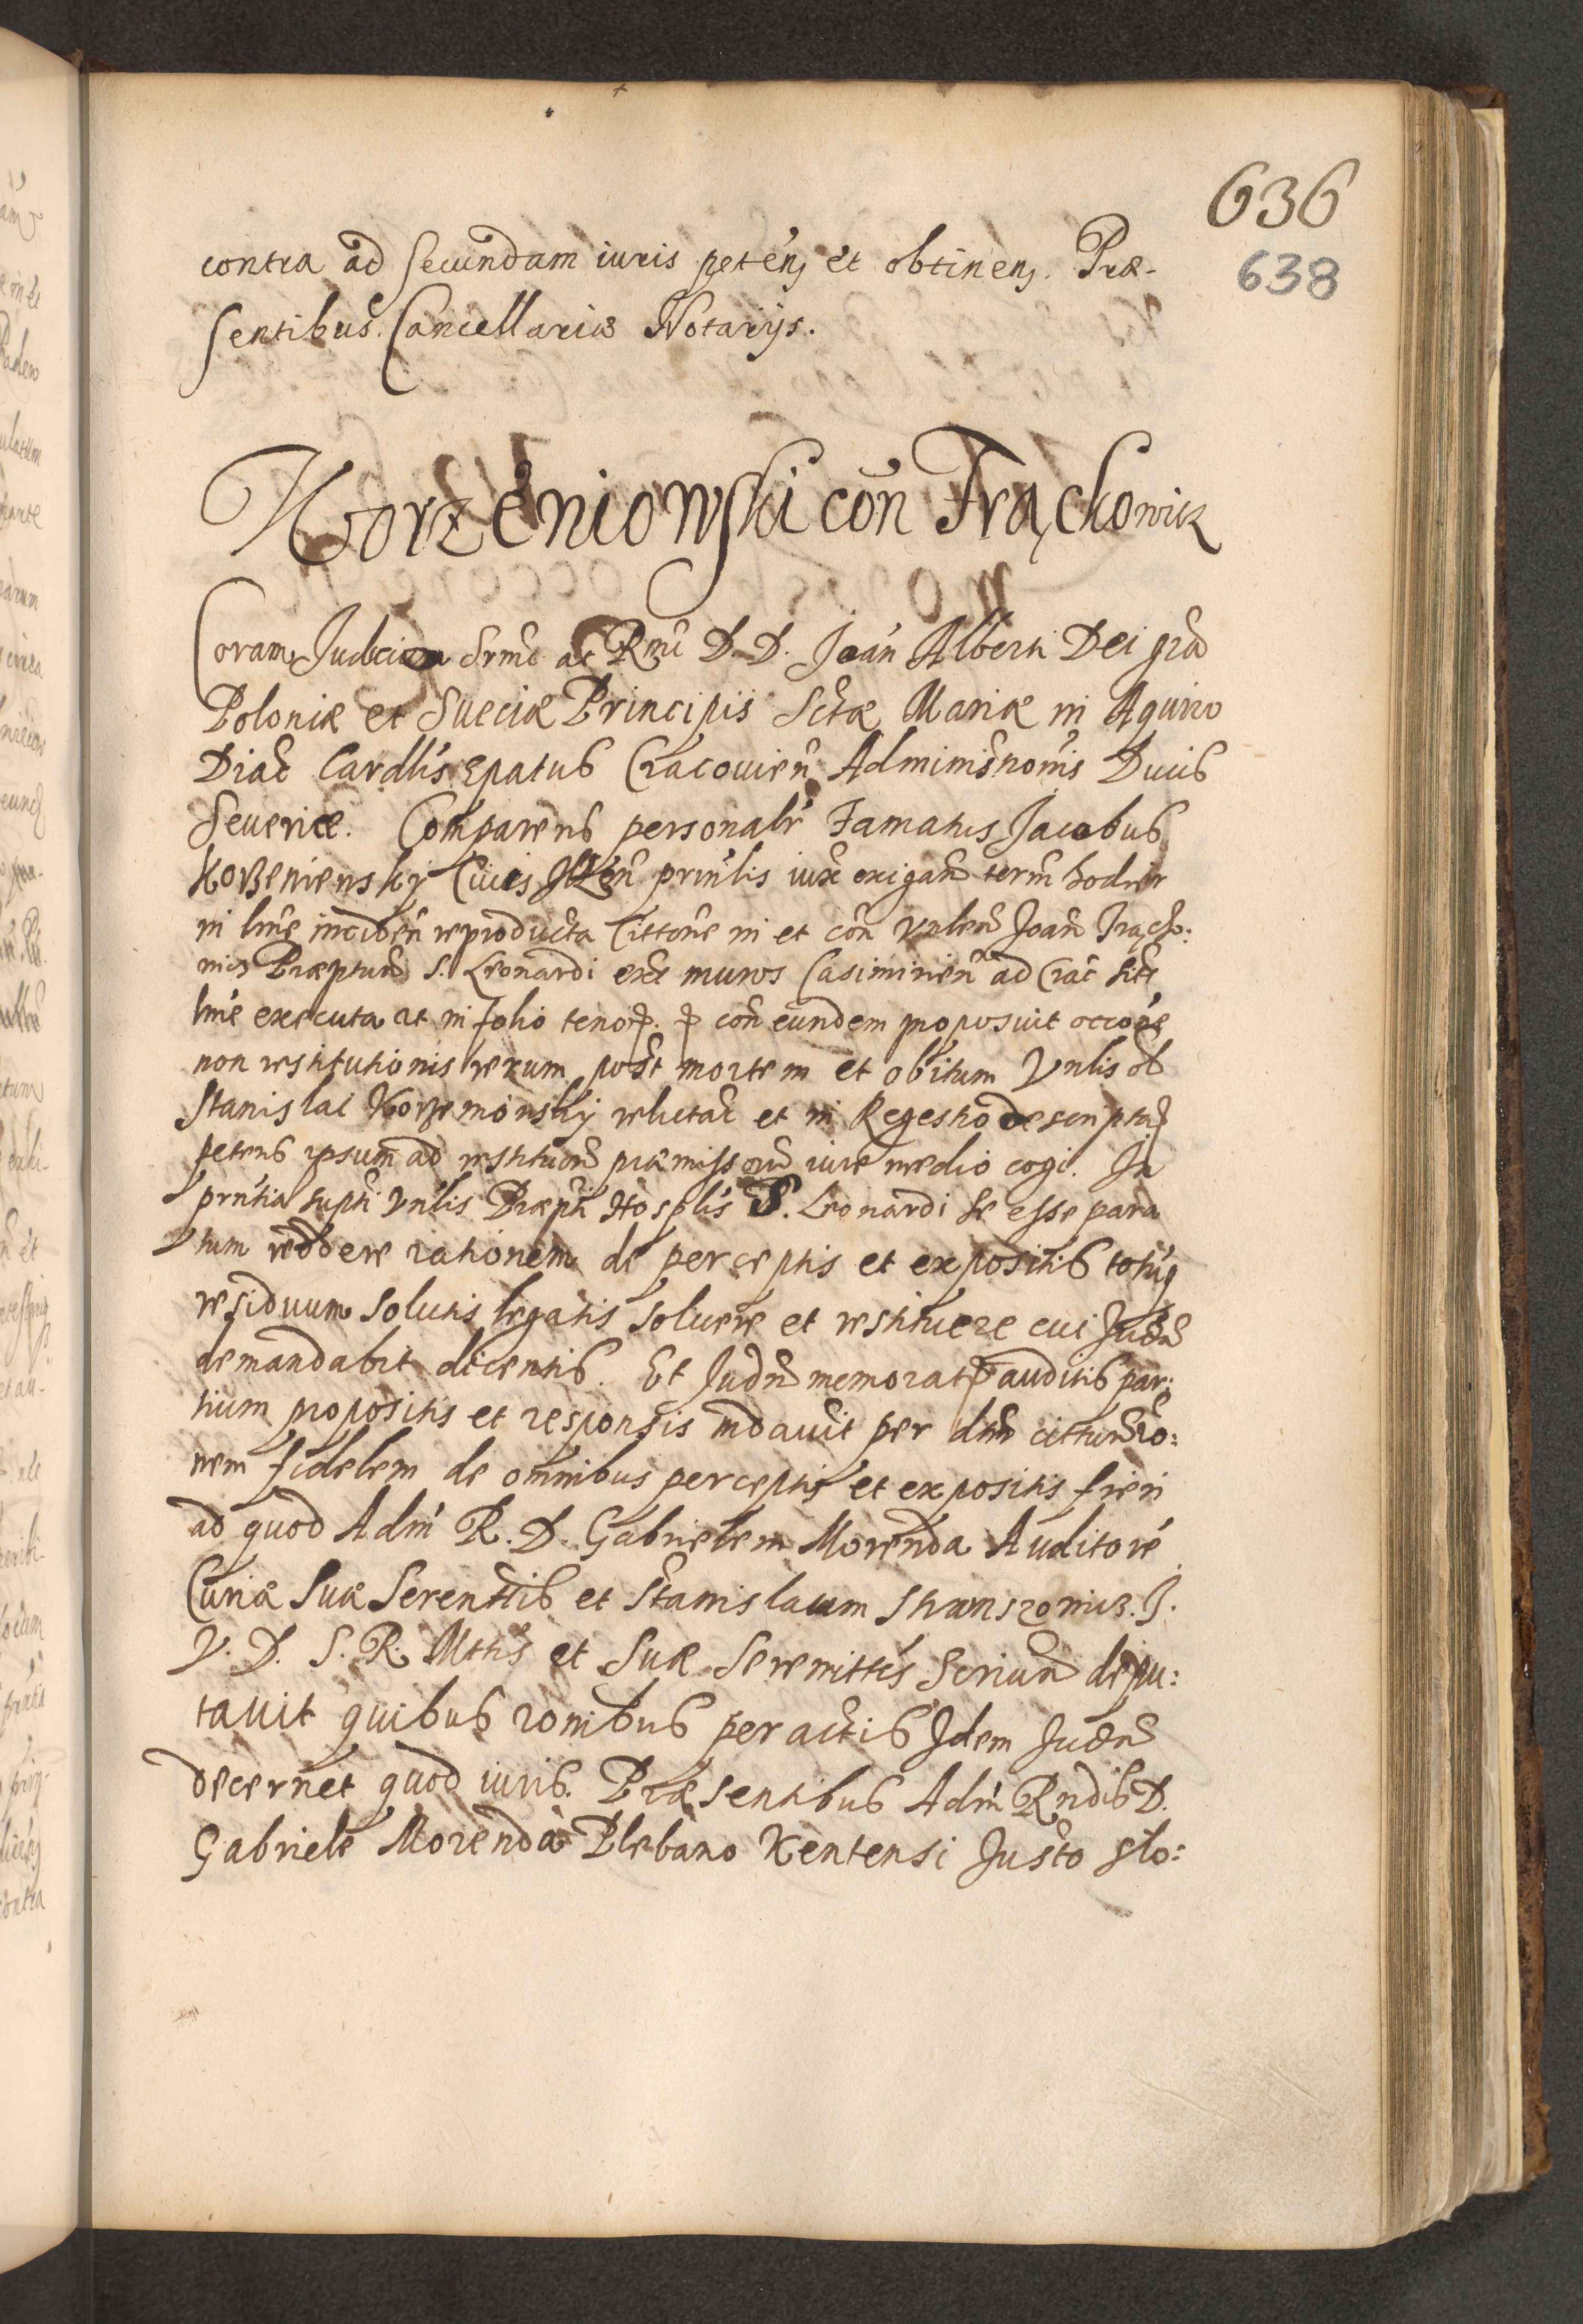 636
638
contra ad secundam iuris petens et obtinens. Præ-
sentibus Cancellariæ Notarijs.
Korzeniowski con Frąckowicz
Coram Judicio Srmi ac Rmi D. D. Joan Alberti Dei gra
Poloniæ et Sueciæ Principis Sctæ Mariæ in Aquiro
Diac Cardlis Epatus Cracovien Administronis Ducis
Severiæ. Comparens personalr Famatus Jacobus
Civis prinlis iure exigan term hodier
in lune inciden reproducta Cittone in et con Vnlem Joan Frącko:
wicz Præptum S. Leonardi extra muros Casimirien ad Crac sits
lme executa ut in folio tenor con eundem proposuit occoe
non restitutionis rerum post mortem et obitum Vnlis ol
Stanislai relictar et in Regestro descriptar
petens ipsum ad restituon præmissorum iure medio cogi. In
prntia supti Vnlis Præpti Hosplis S. Leonardi se esse para
tum reddere rationem de perceptis et expositis totumq
residuum solutis legatis soluere et restituere cui Judm
demandabit dicentis. Et Judm memorat auditis par:
tium propositis et responsis mdavit per dtm cittum ro:
nem fidelem de omnibus perceptis et expositis fieri
ad quod Adm R. D. Gabrielem Morenda Auditore
Curiæ Suæ Serenttis et Stanislaum J.
V. D. S. R. Mttis et Suæ Serenittis depu:
tavit quibus ronibus peractis Idem Judm
decernet quod iuris. Præsentibus Adm Rndis D.
Gabriele Morenda Plebano Kentensi Justo Slo: